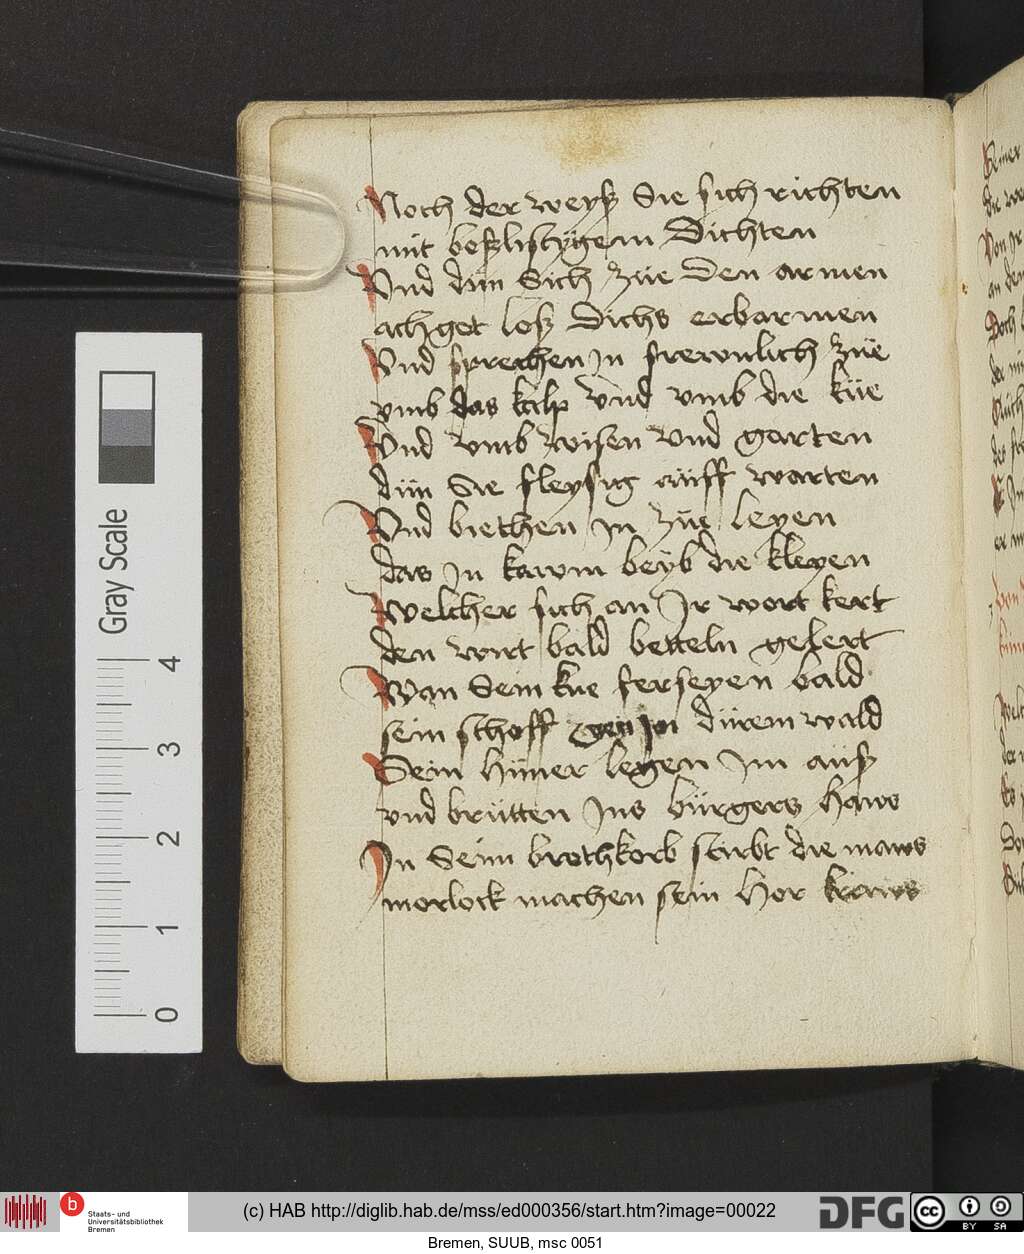 Noch der weyß Sie sich richten
mit beßlistÿgem Dichten
Vnd dün Sich züe den armen
ach get loß Dichs erbarmen
Vnd sprechen jn frewnlich züe
vmb das kalp vnd vmb die küe
Vnd vmb wisen vnd garten
dün Sie fleysig aüff warten
Vnd biethen jn züe leyen
das jn kawm beÿb die kleyen
Welcher sich an Jr wort kert
den wirt bald betteln gelert
Wan Sein kue ferseyen bald
sein schoff gen jn dürem wald
Sein hüner legen Jm aüß
vnd brütten Jns bürgers haws
Jn Seim brothkorb stirbt die maws
morlock machen sein hor kraws
Gray Scale
0 1 2 3 4
Staats- und
Universitätsbibliothek
Bremen
(c) HAB http://diglib.hab.de/mss/ed000356/start.htm?image=00022
DFG
cc BY SA
Bremen, SUUB, msc 0051